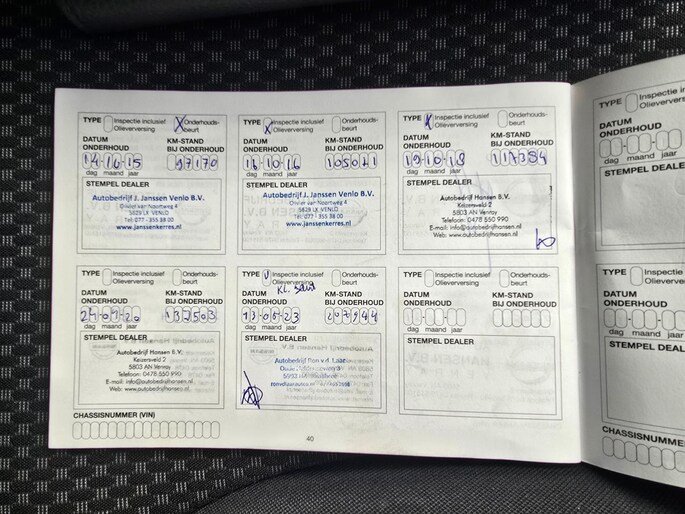 TYPE Inspectie inclusief Olieverversing X Onderhoudsbeurt
DATUM ONDERHOUD KM-STAND BIJ ONDERHOUD
97170
dag maand jaar
STEMPEL DEALER
Autobedrijf J. Janssen Venlo B.V.
Olivier van Noortweg 4
5928 LX VENLO
Tel. 077 - 355 38 00
www.janssenkerres.nl
TYPE X Inspectie inclusief Olieverversing Onderhoudsbeurt
DATUM ONDERHOUD KM-STAND BIJ ONDERHOUD
10-16 105071
dag maand jaar
STEMPEL DEALER
Autobedrijf J. Janssen Venlo B.V.
Olivier van Noortweg 4
5928 LX VENLO
Tel. 077 - 355 38 00
www.janssenkerres.nl
TYPE X Inspectie inclusief Olieverversing Onderhoudsbeurt
DATUM ONDERHOUD KM-STAND BIJ ONDERHOUD
19-10-18 117384
dag maand jaar
STEMPEL DEALER
Autobedrijf Hansen B.V.
Keizersveld 2
5803 AN Venray
Telefoon: 0478 550 990
E-mail: info@autobedrijfhansen.nl
Web: www.autobedrijfhansen.nl
TYPE Inspectie inclusief Olieverversing Onderhoudsbeurt
DATUM ONDERHOUD KM-STAND BIJ ONDERHOUD
137503
dag maand jaar
STEMPEL DEALER
Autobedrijf Hansen B.V.
Keizersveld 2
5803 AN Venray
Telefoon: 0478 550 990
E-mail: info@autobedrijfhansen.nl
Web: www.autobedrijfhansen.nl
TYPE V Inspectie inclusief Olieverversing Onderhoudsbeurt
KL.
DATUM ONDERHOUD KM-STAND BIJ ONDERHOUD
13-05-23 207944
dag maand jaar
STEMPEL DEALER
Autobedrijf Ron v.d. Laar
TYPE Inspectie inclusief Olieverversing Onderhoudsbeurt
DATUM ONDERHOUD KM-STAND BIJ ONDERHOUD
dag maand jaar
STEMPEL DEALER
CHASSISNUMMER (VIN)
40
TYPE Inspectie Olieverve
DATUM ONDERHOUD
dag maand jaar
STEMPEL DEALE
TYPE Inspectie Olieverve
DATUM ONDERHOUD
dag maand jaar
STEMPEL DEALE
CHASSISNUMME